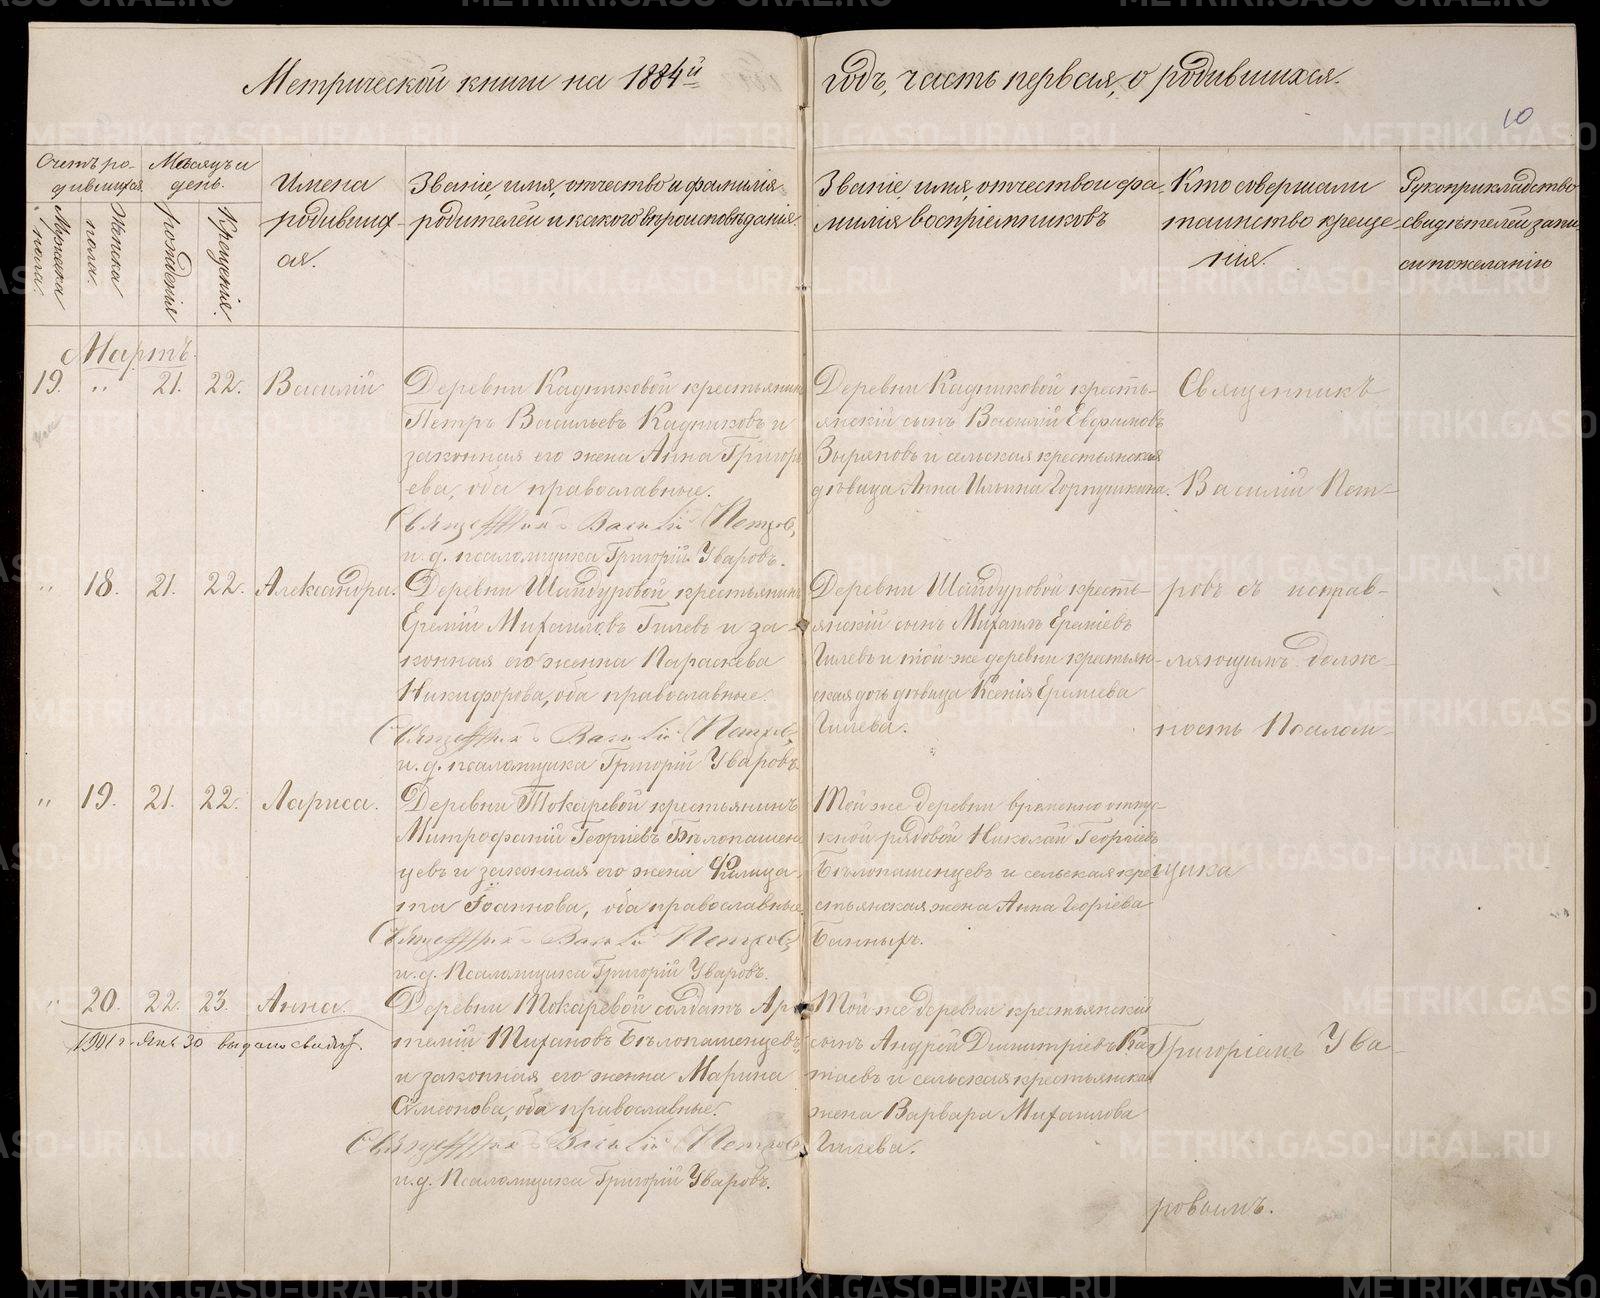 Метрической книги на 1884й
годъ, часть первая, о родившихся.
10
Счетъ ро-
дившихся.
Мужска пола.
Женска пола.
Мѣсяцъ и
день.
рожденія
Крещенія.
Имена
родивших-
ся.
Званіе, имя, отчество и фамилія
родителей и какого вѣроисповѣданія.
Званіе, имя, отчество и фа-
милія воспріемниковъ
Кто совершали
таинство креще-
нія.
Рукоприкладство
свидѣтелей запи-
си по желанію
Мартъ.
19. " 21. 22. Василій
Деревни Кадниковой крестьянинъ
Петръ Васильевъ Кадниковъ и
законная его жена Анна Григорь
ева, оба православные.
Священникъ Василій Петровъ,
и. д. псаломщика Григорій Уваровъ.
Деревни Кадниковой кресть-
янскій сынъ Василій Евфимовъ
Зыряновъ и сельская крестьянская
дѣвица Анна Ильина Горпушкина.
" 18. 21. 22. Александра.
Деревни Шайдуровой крестьянинъ
Еремій Михаиловъ Гилевъ и за-
конная его женна Параскева
Никифорова, оба православные.
Священникъ Василій Петровъ,
и. д. псаломщика Григорій Уваровъ
Деревни Шайдуровой кресть-
янскій сынъ Михаилъ Ереміевъ
Гилевъ и той-же деревни крестьян-
ская дочь дѣвица Ксенія Еремiева
Гилева.
" 19. 21. 22. Лариса.
Деревни Токаревой крестьянинъ
Митрофаній Георгіевъ Бѣлопашен
цевъ и законная его жена Филица-
та Іоаннова, оба православные.
Священникъ Василій Петровъ,
и. д. Псаломщика Григорій Уваровъ.
Той же деревни временно отпус-
кной рядовой Николай Георгіевъ
Бѣлопашенцевъ и сельская кре-
стьянская жена Анна Георгіева
Банныхъ.
" 20. 22. 23. Анна.
1901 г. Янв 30 выдано свидѣт.
Деревни Токаревой солдатъ Ар-
темій Тихановъ Бѣлопашенцевъ
и законная его женна Марина
Симеонова, оба православные.
Священникъ Василій Петровъ,
и. д. Псаломщика Григорій Уваровъ.
Той-же деревни крестьянскій
сынъ Андрей Димитріевъ Ка-
таевъ и сельская крестьянская
жена Варвара Михаилова
Гилева.
Священникъ
Василій Пет-
ровъ съ исправ-
ляющимъ долж-
ность Псалом-
щика
Григоріемъ Ува-
ровымъ.
METRIKI.GASO-URAL.RU